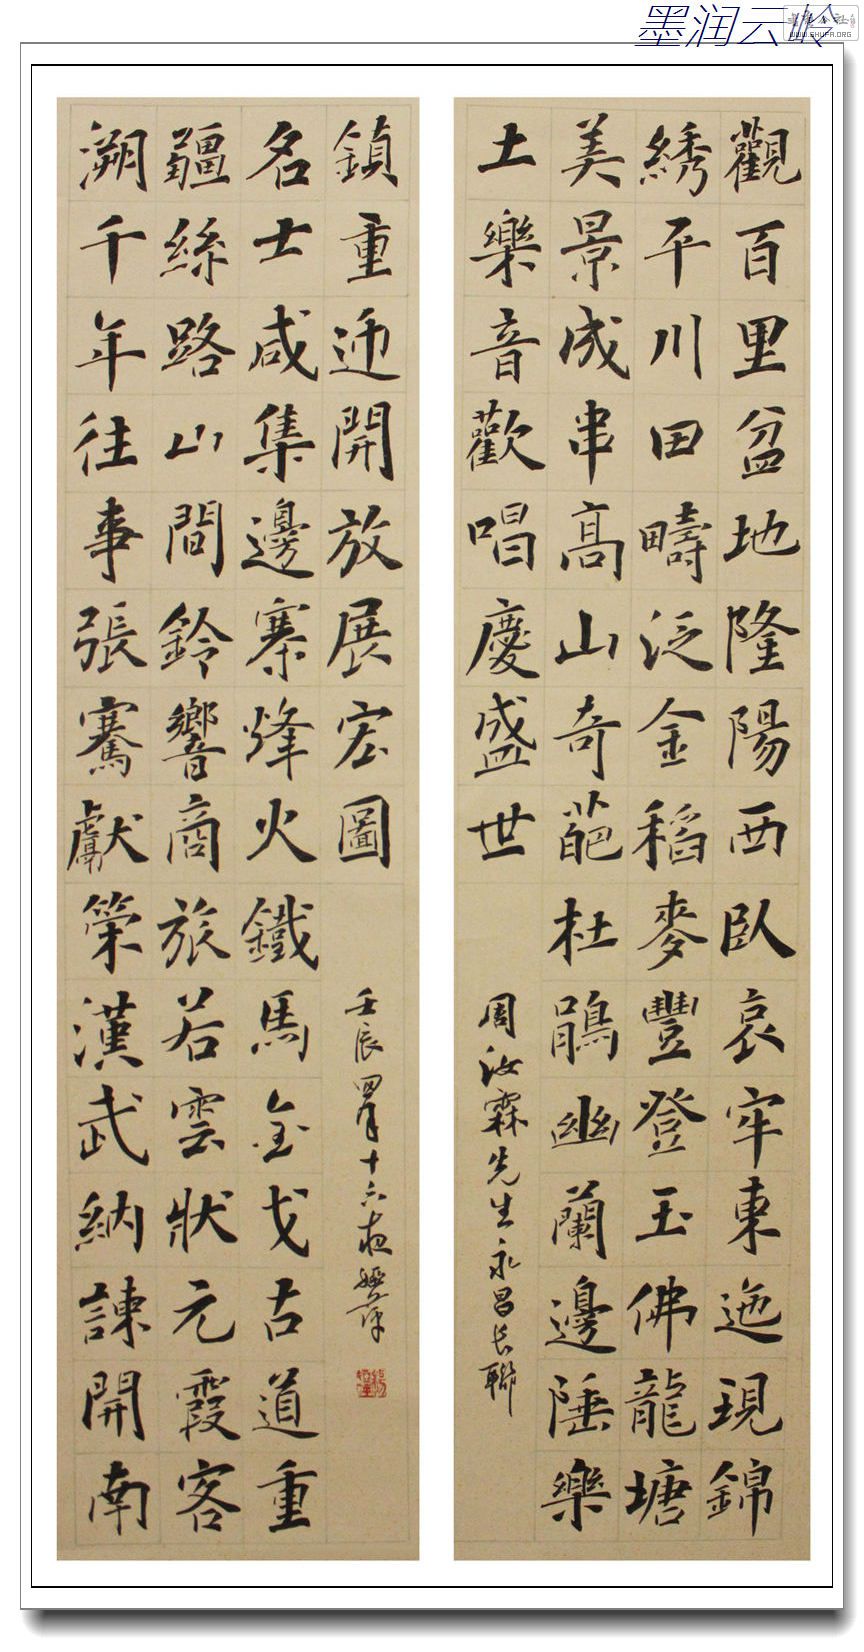 墨润云岭
WWW.SHUFA.ORG
觀百里盆地隆陽西臥哀牢東迤現錦
綉平川田疇泛金稻麥豐登玉佛龍塘
美景成串高山奇葩杜鵑幽蘭邊陲樂
土樂音歡唱慶盛世
周汝霖先生永昌長聯
溯千年往事張騫獻策漢武納諫開南
疆絲路山間鈴響商旅若雲狀元霞客
名士咸集邊寨烽火鐵馬金戈古道重
鎮重開放展宏圖
壬辰四月十六夜